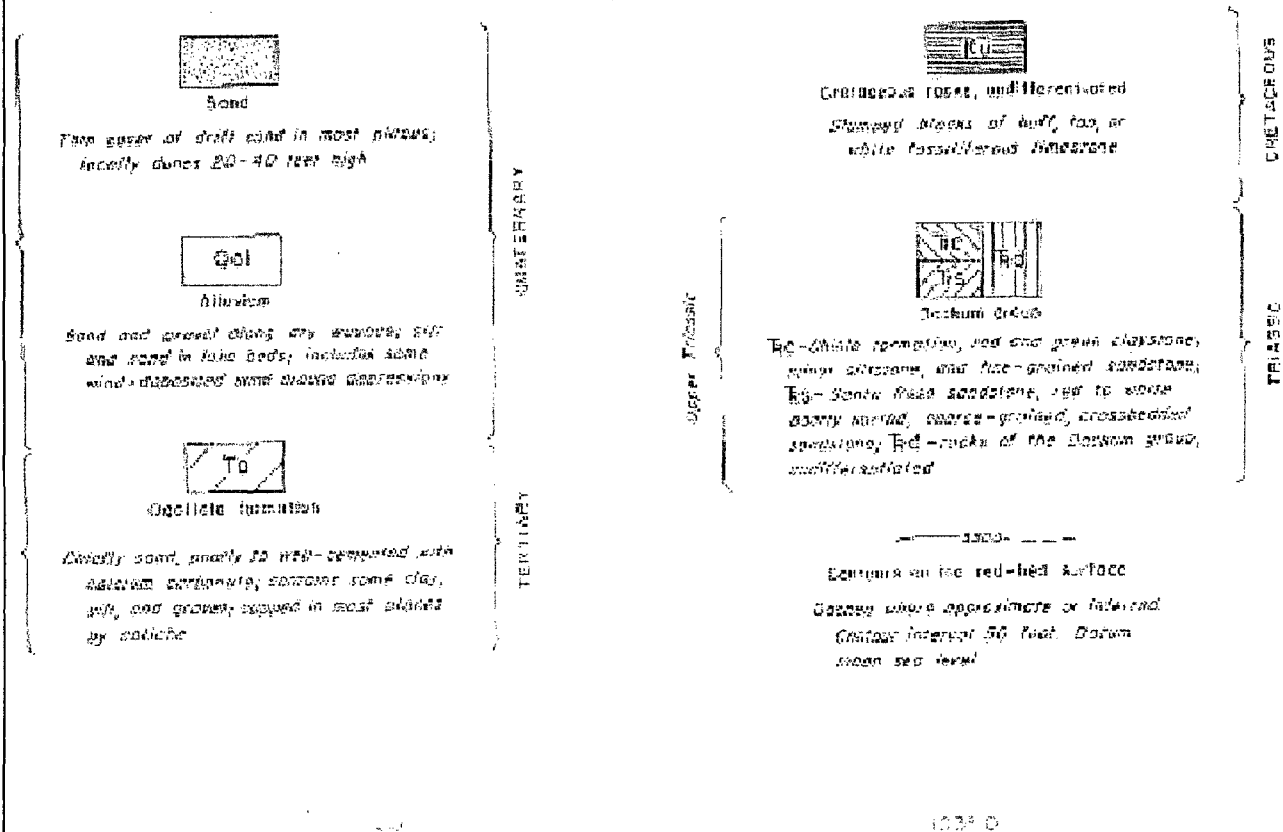 Sand
Thin cover of drift sand in most places;
locally dunes 20-40 feet high
Qal
Alluvium
Sand and gravel along dry washes; silt
and sand in lake beds; includes some
wind-deposited sand around depressions
QUATERNARY
To
Ogallala formation
Chiefly sand, poorly to well-cemented with
calcium carbonate; contains some clay,
silt, and gravel; capped in most places
by caliche
TERTIARY
Ku
Cretaceous rocks, undifferentiated
Slumped blocks of buff, tan, or
white fossiliferous limestone
CRETACEOUS
Upper Triassic
Dockum Group
Chinle formation, red and green claystone;
minor siltstone, and fine-grained sandstone;
Santa Rosa sandstone, red to white
poorly sorted, coarse-grained, crossbedded
sandstone; rocks of the Dockum group,
undifferentiated
TRIASSIC
Contours on the red-bed surface
Dashed where approximate or inferred.
Contour interval feet. Datum
mean sea level